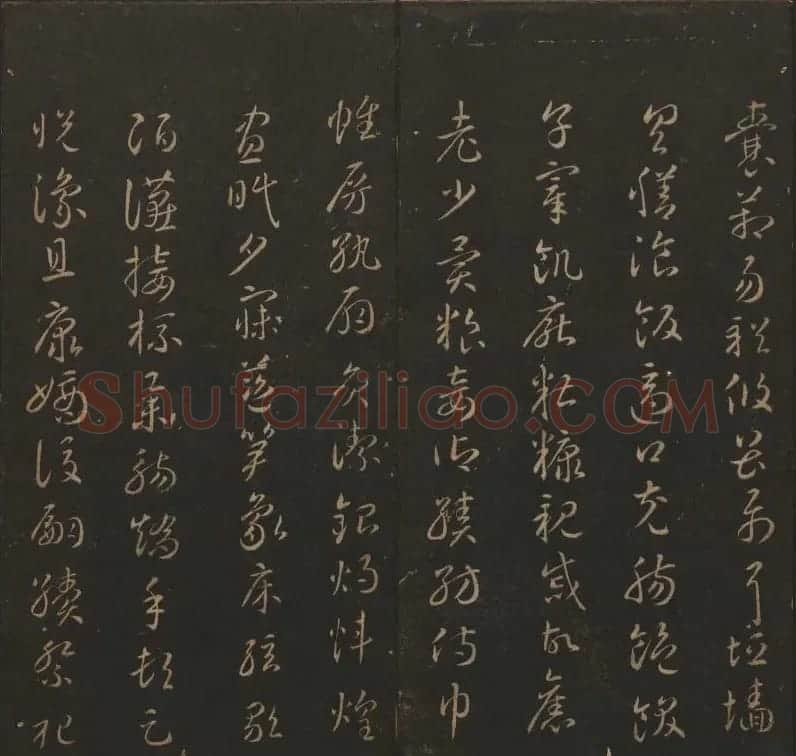 囊箱易輶攸畏屬耳垣墻
具膳飡飯適口充腸飽飫
烹宰飢厭糟糠親戚故舊
老少異糧妾御績紡侍巾
帷房紈扇圓潔銀燭煒煌
晝眠夕寐藍笋象床弦歌
酒讌接杯舉觴矯手頓足
悅豫且康嫡後嗣續祭祀
Shufaziliao.COM